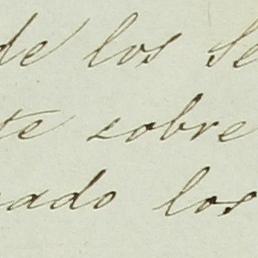 de los Se
te sobre
ado los